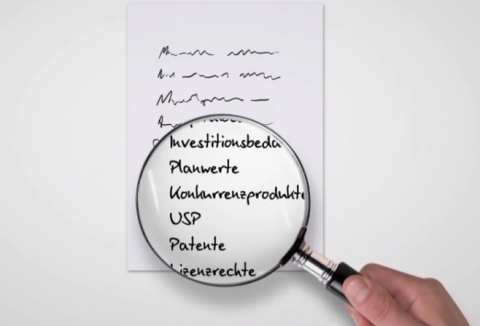 Investitionsbeda
Planwerte
Konkurrenzprodukte
USP
Patente
Lizenzrechte